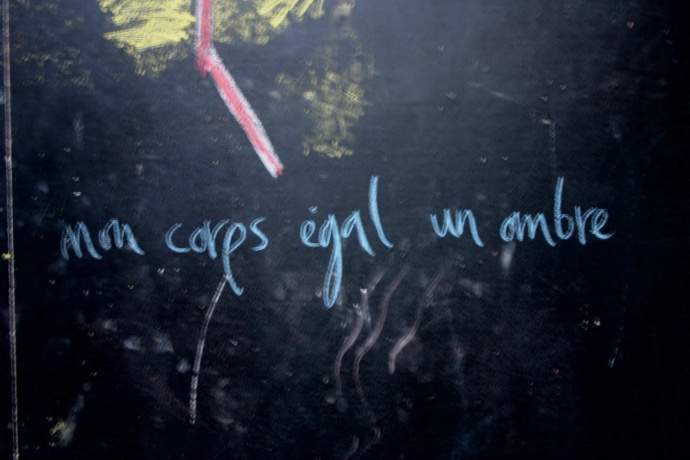 mon corps égal un ombre